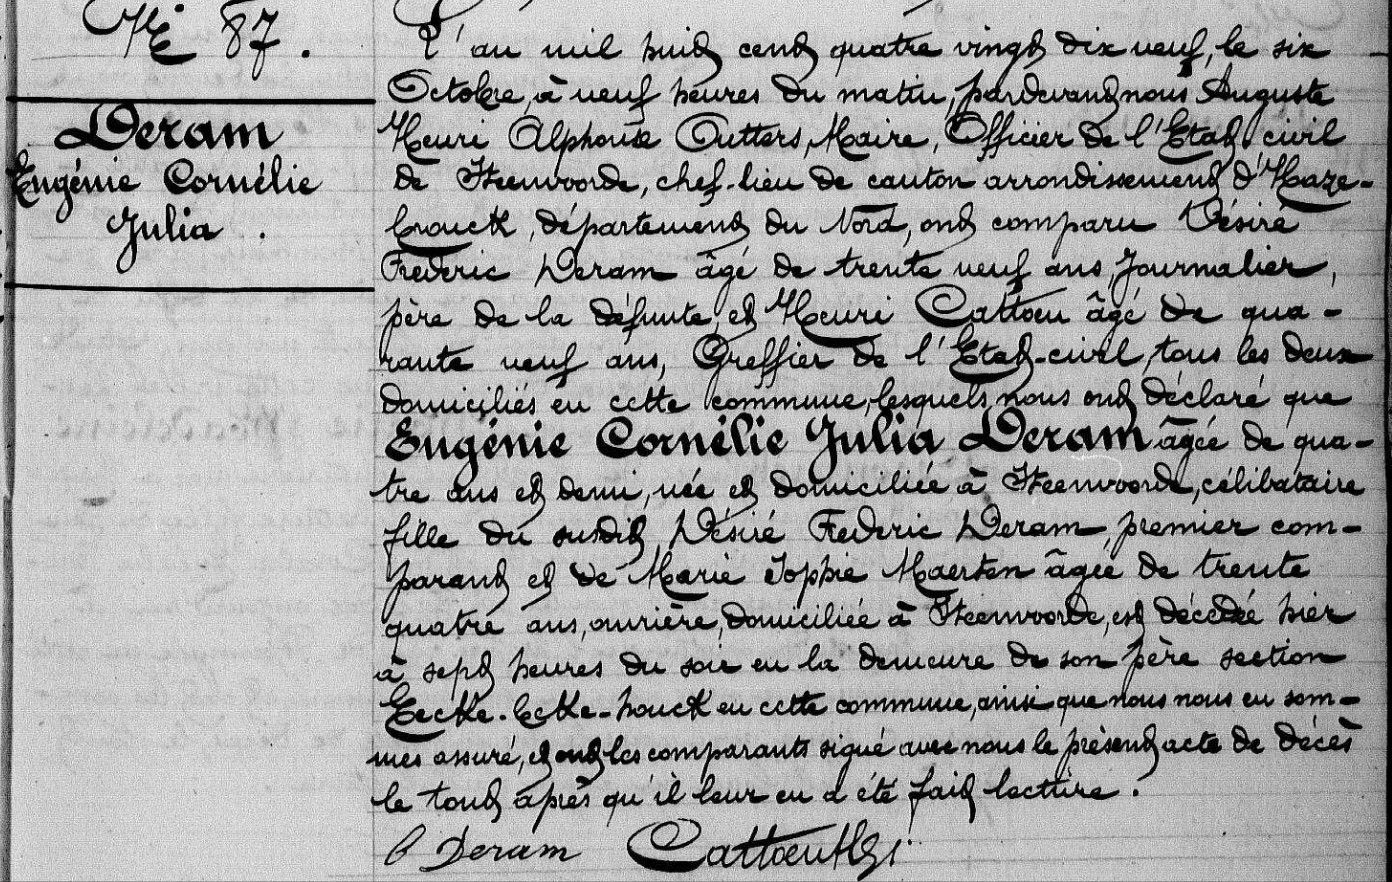 Nº 87.
Deram
Eugénie Cornélie
Julia.
L'an mil huit cent quatre vingt dix neuf, le six
Octobre, à neuf heures du matin, pardevant nous Auguste
Henri Alphonse Outters, Maire, Officier de l'Etat civil
de Steenvoorde, chef-lieu de canton arrondissement d'Haze-
brouck, département du Nord, ont comparu Désiré
Frederic Deram âgé de trente neuf ans, Journalier,
père de la défunte, et Henri Cattoen âgé de qua-
rante neuf ans, Greffier de l'Etat-civil, tous les deux
domiciliés en cette commune, lesquels nous ont déclaré que
Eugénie Cornélie Julia Deram âgée de qua-
tre ans et demi, née et domiciliée à Steenvoorde, célibataire
fille du susdit Désiré Frederic Deram, premier com-
parant et de Marie Sophie Maerten âgée de trente
quatre ans, ouvrière, domiciliée à Steenvoorde, est décedée hier
à sept heures du soir en la demeure de son père section
Eecke-Ecke-houck en cette commune, ainsi que nous nous en som-
mes assuré, et ont les comparants signé avec nous le présent acte de décès
le tout après qu'il leur en a été fait lecture.
Deram Cattoen